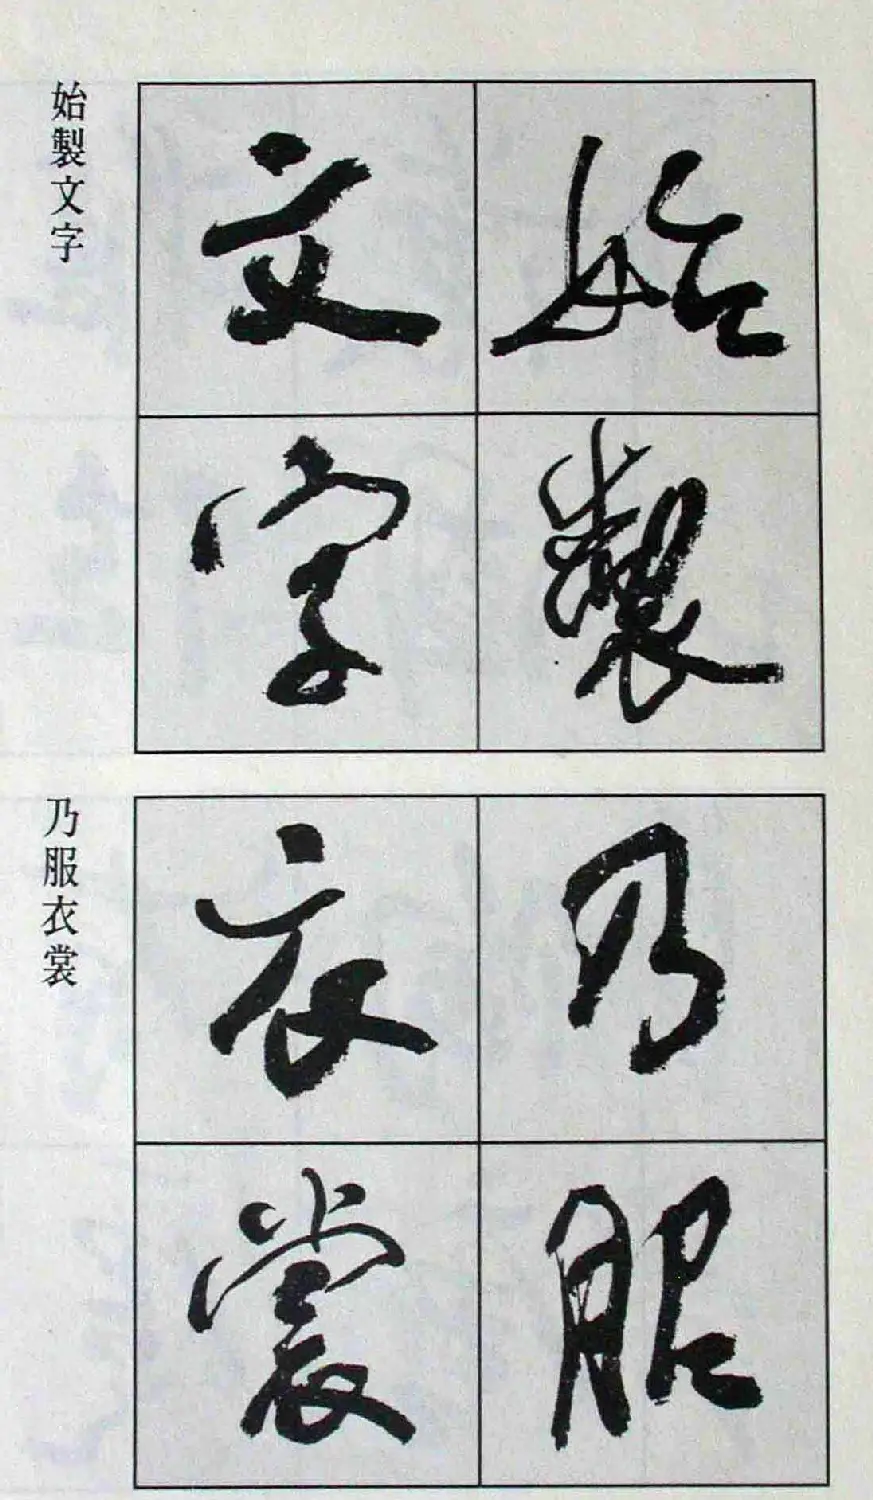 始製
文字
始製文字
乃服
衣裳
乃服衣裳